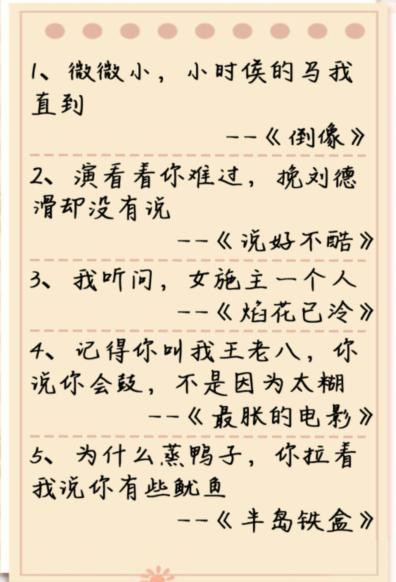 1、微微小，小时侯的马我
直到
--《倒像》
2、演看着你难过，挽刘德
滑却没有说
--《说好不酷》
3、我听问，女施主一个人
--《焰花已冷》
4、记得你叫我王老八，你
说你会鼓，不是因为太糊
--《最胀的电影》
5、为什么蒸鸭子，你拉着
我说你有些鱿鱼
--《半岛铁盒》